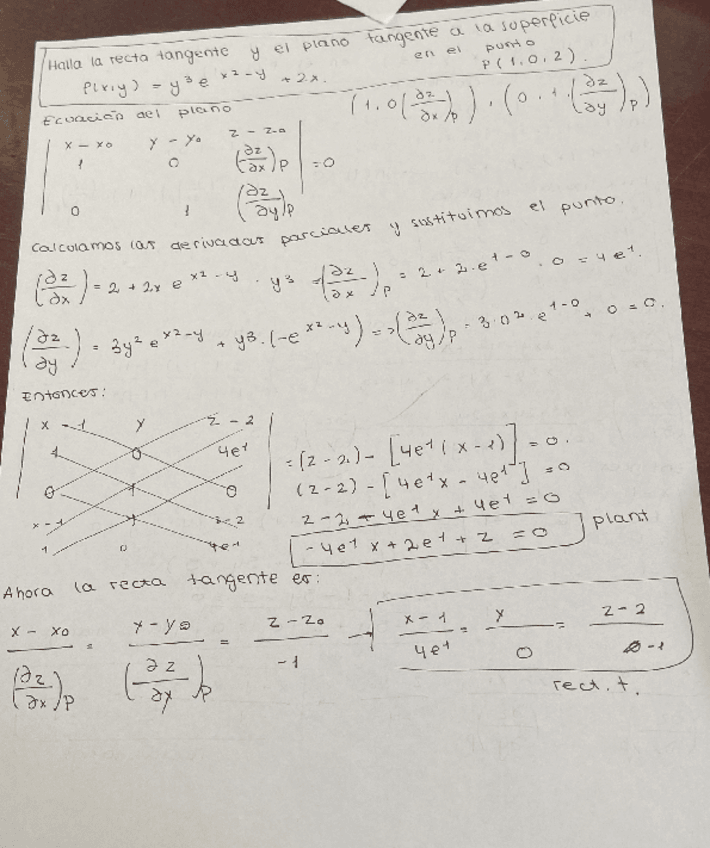 Halla la recta tangente y el plano tangente a la superficie
f(x,y) = y³e^(x²-y) + 2x. en el punto P(1,0,2).
Ecuación del plano (1,0(∂z/∂x)p), (0,1,(∂z/∂y)p)
| x-x₀ y-y₀ z-z₀ |
| 1 0 (∂z/∂x)p | =0
| 0 1 (∂z/∂y)p |
Calculamos las derivadas parciales y sustituimos el punto.
(∂z/∂x) = 2 + 2x e^(x²-y) · y³ (∂z/∂x)p = 2 + 2·e^(1-0) · 0 = 4e¹.
(∂z/∂y) = 3y² e^(x²-y) + y³·(-e^(x²-y)) => (∂z/∂y)p = 3·0²·e^(1-0) + 0 = 0.
Entonces:
| x-1 y z-2 |
| 1 0 4e¹ | = (z-2) - [4e¹(x-1)] = 0.
| 0 1 0 | (z-2) - [4e¹x - 4e¹] = 0
x-1 y z-2 z-2 - 4e¹x + 4e¹ = 0
1 0 4e¹ -4e¹x + 2e¹ + z = 0 plant
Ahora la recta tangente es:
(x-x₀)/(∂z/∂x)p = (y-y₀)/(∂z/∂y)p = (z-z₀)/-1 → (x-1)/4e¹ = y/0 = (z-2)/-1
rect. t.